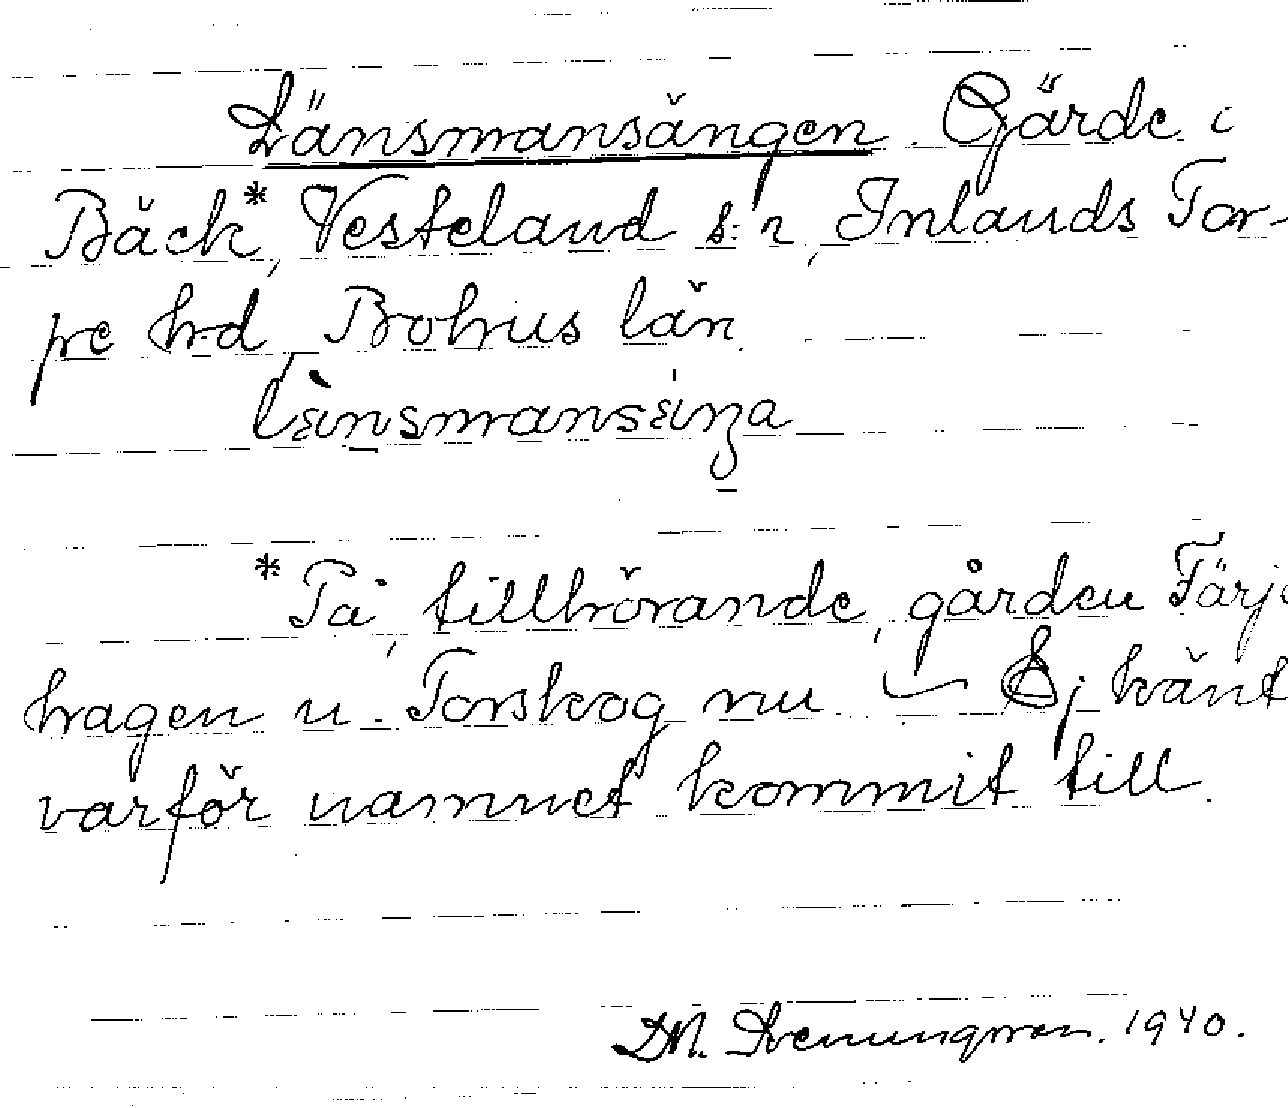 Länsmansängen. Gärde i
Bäck*, Vesteland s:n, Inlands Tor-
pe hrd, Bohus län.
lɛ̀nsmansɛ́ŋa
*På, tillhörande, gården Färje
hagen u. Torskog nu. — Ej känt
varför namnet kommit till.
1940.